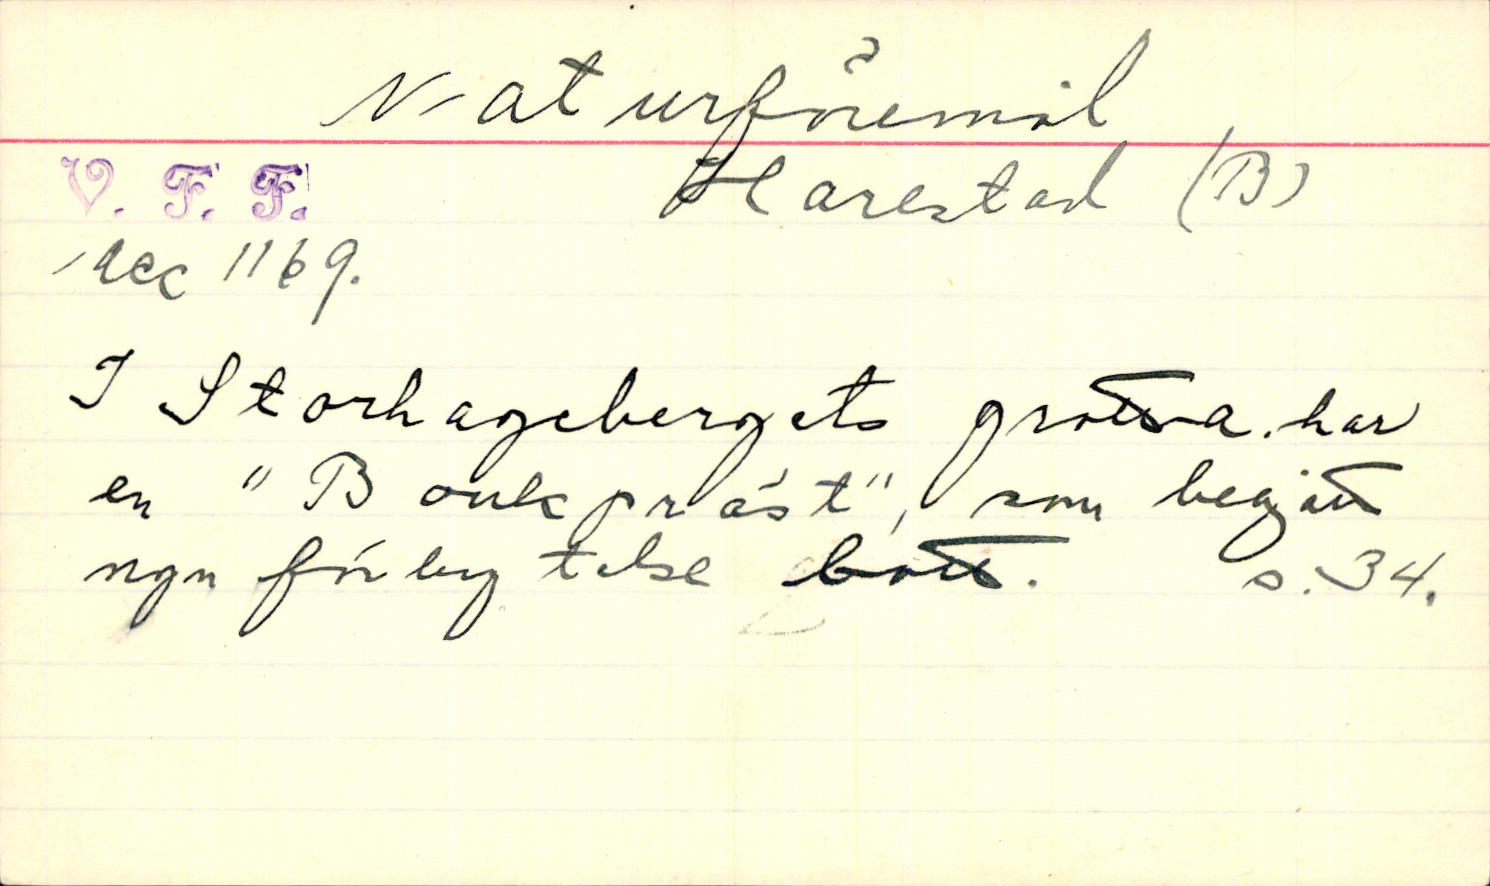 Naturföremål
V. F. F. Harestad (B)
Acc 1169.
I Storhagebergets grotta har
en "Bonkpräst", som begått
ngn förbrytelse bott. s. 34.